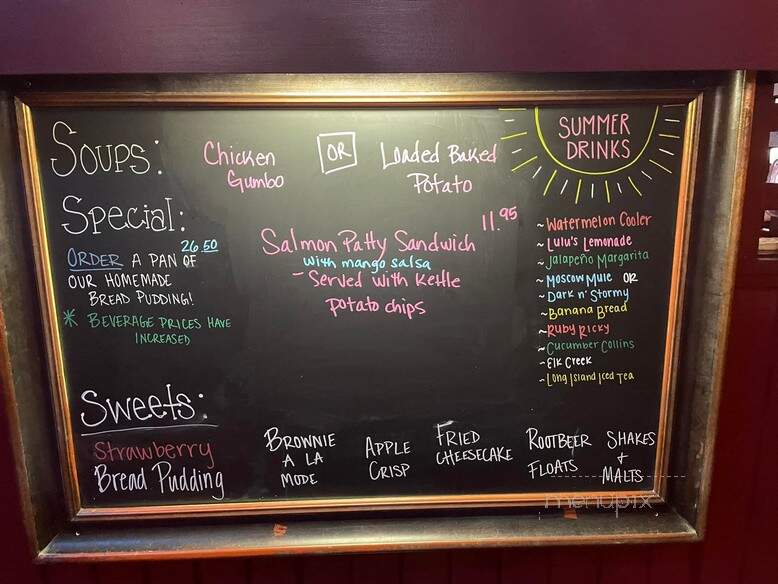 Soups:
Chicken
Gumbo
OR
Loaded Baked
Potato
SUMMER
DRINKS
Special:
26.50
ORDER A PAN OF
OUR HOMEMADE
BREAD PUDDING!
* BEVERAGE PRICES HAVE
INCREASED
11.95
Salmon Patty Sandwich
with mango salsa
- Served with Kettle
potato chips
~Watermelon Cooler
~Lulu's Lemonade
~Jalapeño Margarita
~Moscow Mule OR
~Dark n' Stormy
~Banana Bread
~Ruby Ricky
~Cucumber Collins
~Elk Creek
~Long Island Iced Tea
Sweets:
Strawberry
Bread Pudding
BROWNIE
A LA
MODE
APPLE
CRISP
FRIED
CHEESECAKE
ROOTBEER
FLOATS
SHAKES
+
MALTS
menupix